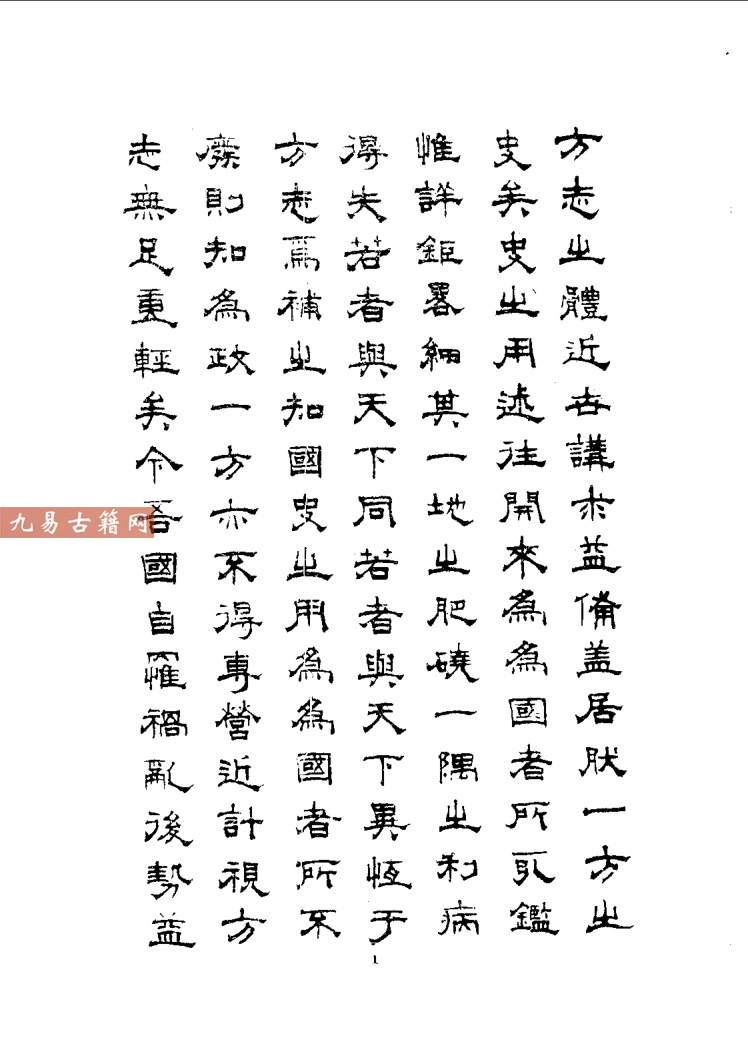 方志之體近古講求益備蓋居肰一方之
史矣史之用述往開來為為國者所取鑑
惟詳鉅畧細其一地之肥磽一隅之利病
得失若者與天下同若者與天下異恆于
方志焉補之知國史之用為為國者所不
廢則知為政一方亦不得專營近計視方
志無足重輕矣今吾國自罹禍亂後勢益
九易古籍网
1